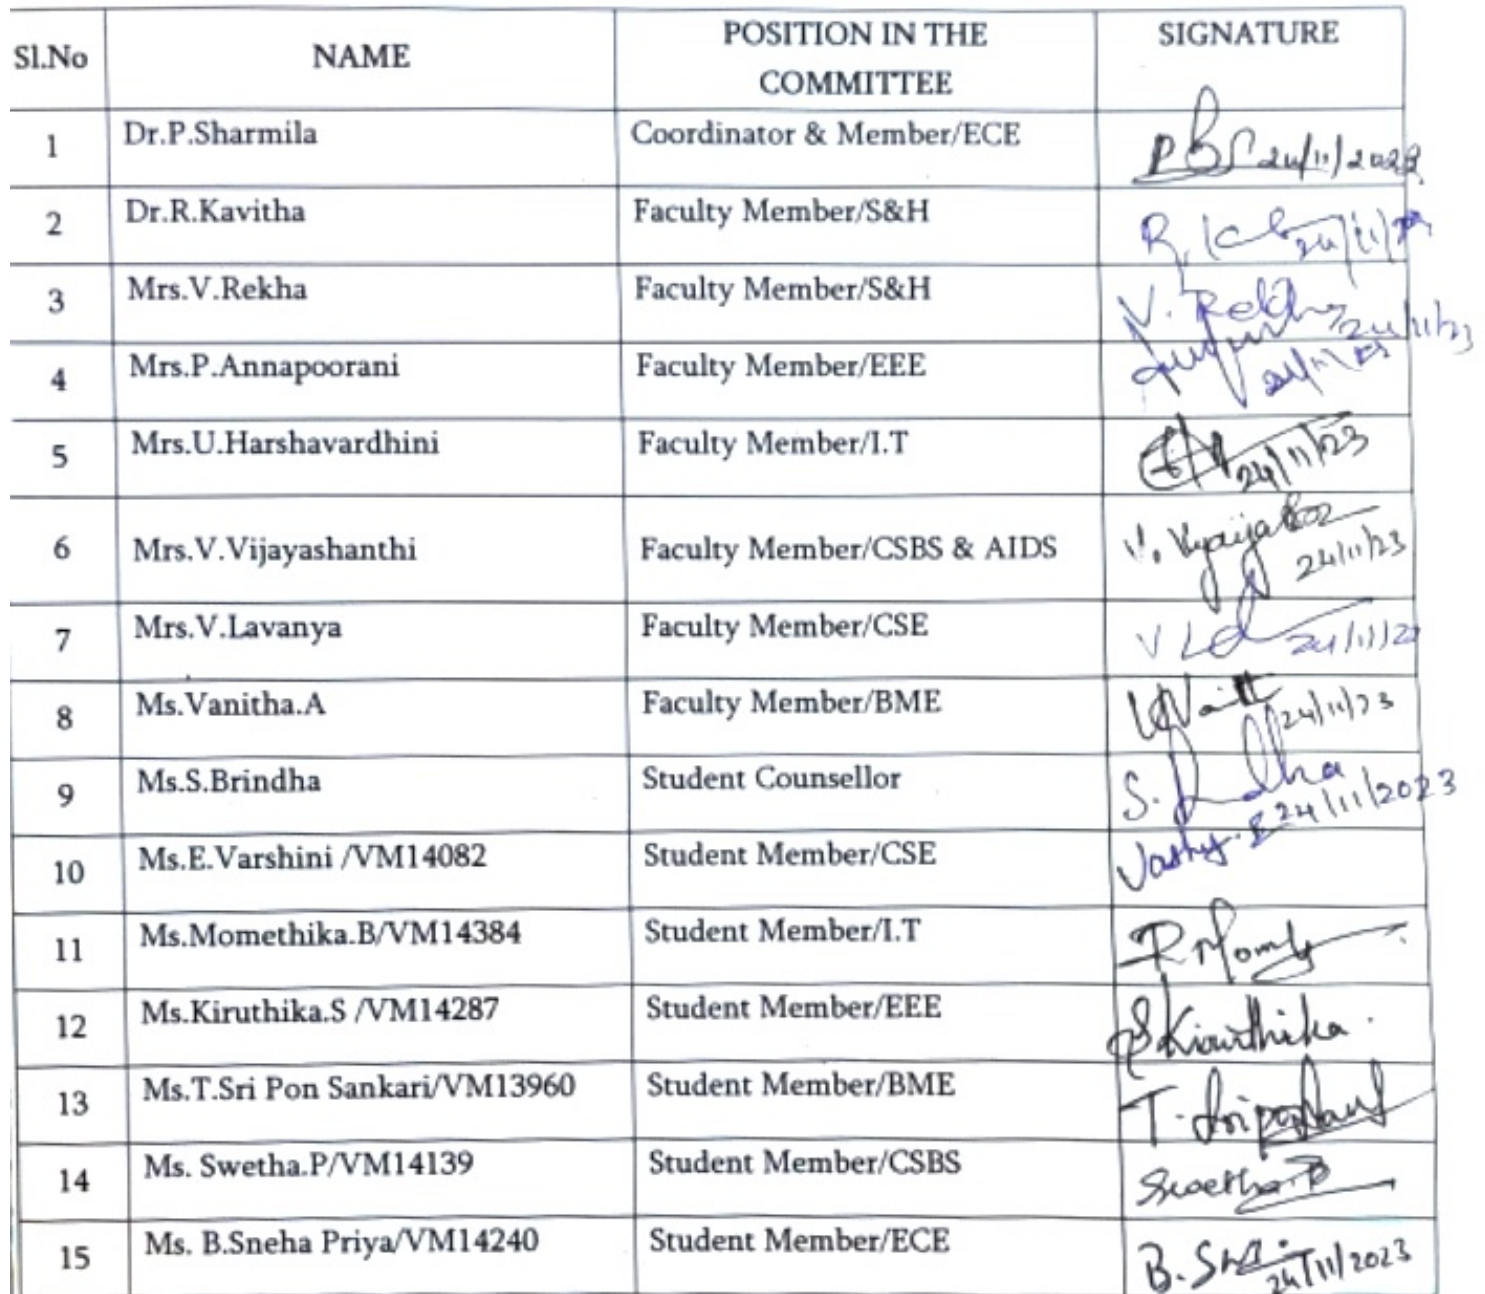 Sl.No NAME POSITION IN THE COMMITTEE SIGNATURE
1 Dr.P.Sharmila Coordinator & Member/ECE 24/11/2023
2 Dr.R.Kavitha Faculty Member/S&H R. 24/11/23
3 Mrs.V.Rekha Faculty Member/S&H V. Rekha 24/11/23
4 Mrs.P.Annapoorani Faculty Member/EEE 24/11/23
5 Mrs.U.Harshavardhini Faculty Member/I.T 24/11/23
6 Mrs.V.Vijayashanthi Faculty Member/CSBS & AIDS V. 24/11/23
7 Mrs.V.Lavanya Faculty Member/CSE V 24/11/23
8 Ms.Vanitha.A Faculty Member/BME 24/11/23
9 Ms.S.Brindha Student Counsellor S. 24/11/2023
10 Ms.E.Varshini /VM14082 Student Member/CSE
11 Ms.Momethika.B/VM14384 Student Member/I.T
12 Ms.Kiruthika.S /VM14287 Student Member/EEE S Kiruthika.
13 Ms.T.Sri Pon Sankari/VM13960 Student Member/BME T.
14 Ms. Swetha.P/VM14139 Student Member/CSBS Swetha.P
15 Ms. B.Sneha Priya/VM14240 Student Member/ECE B. 24/11/2023